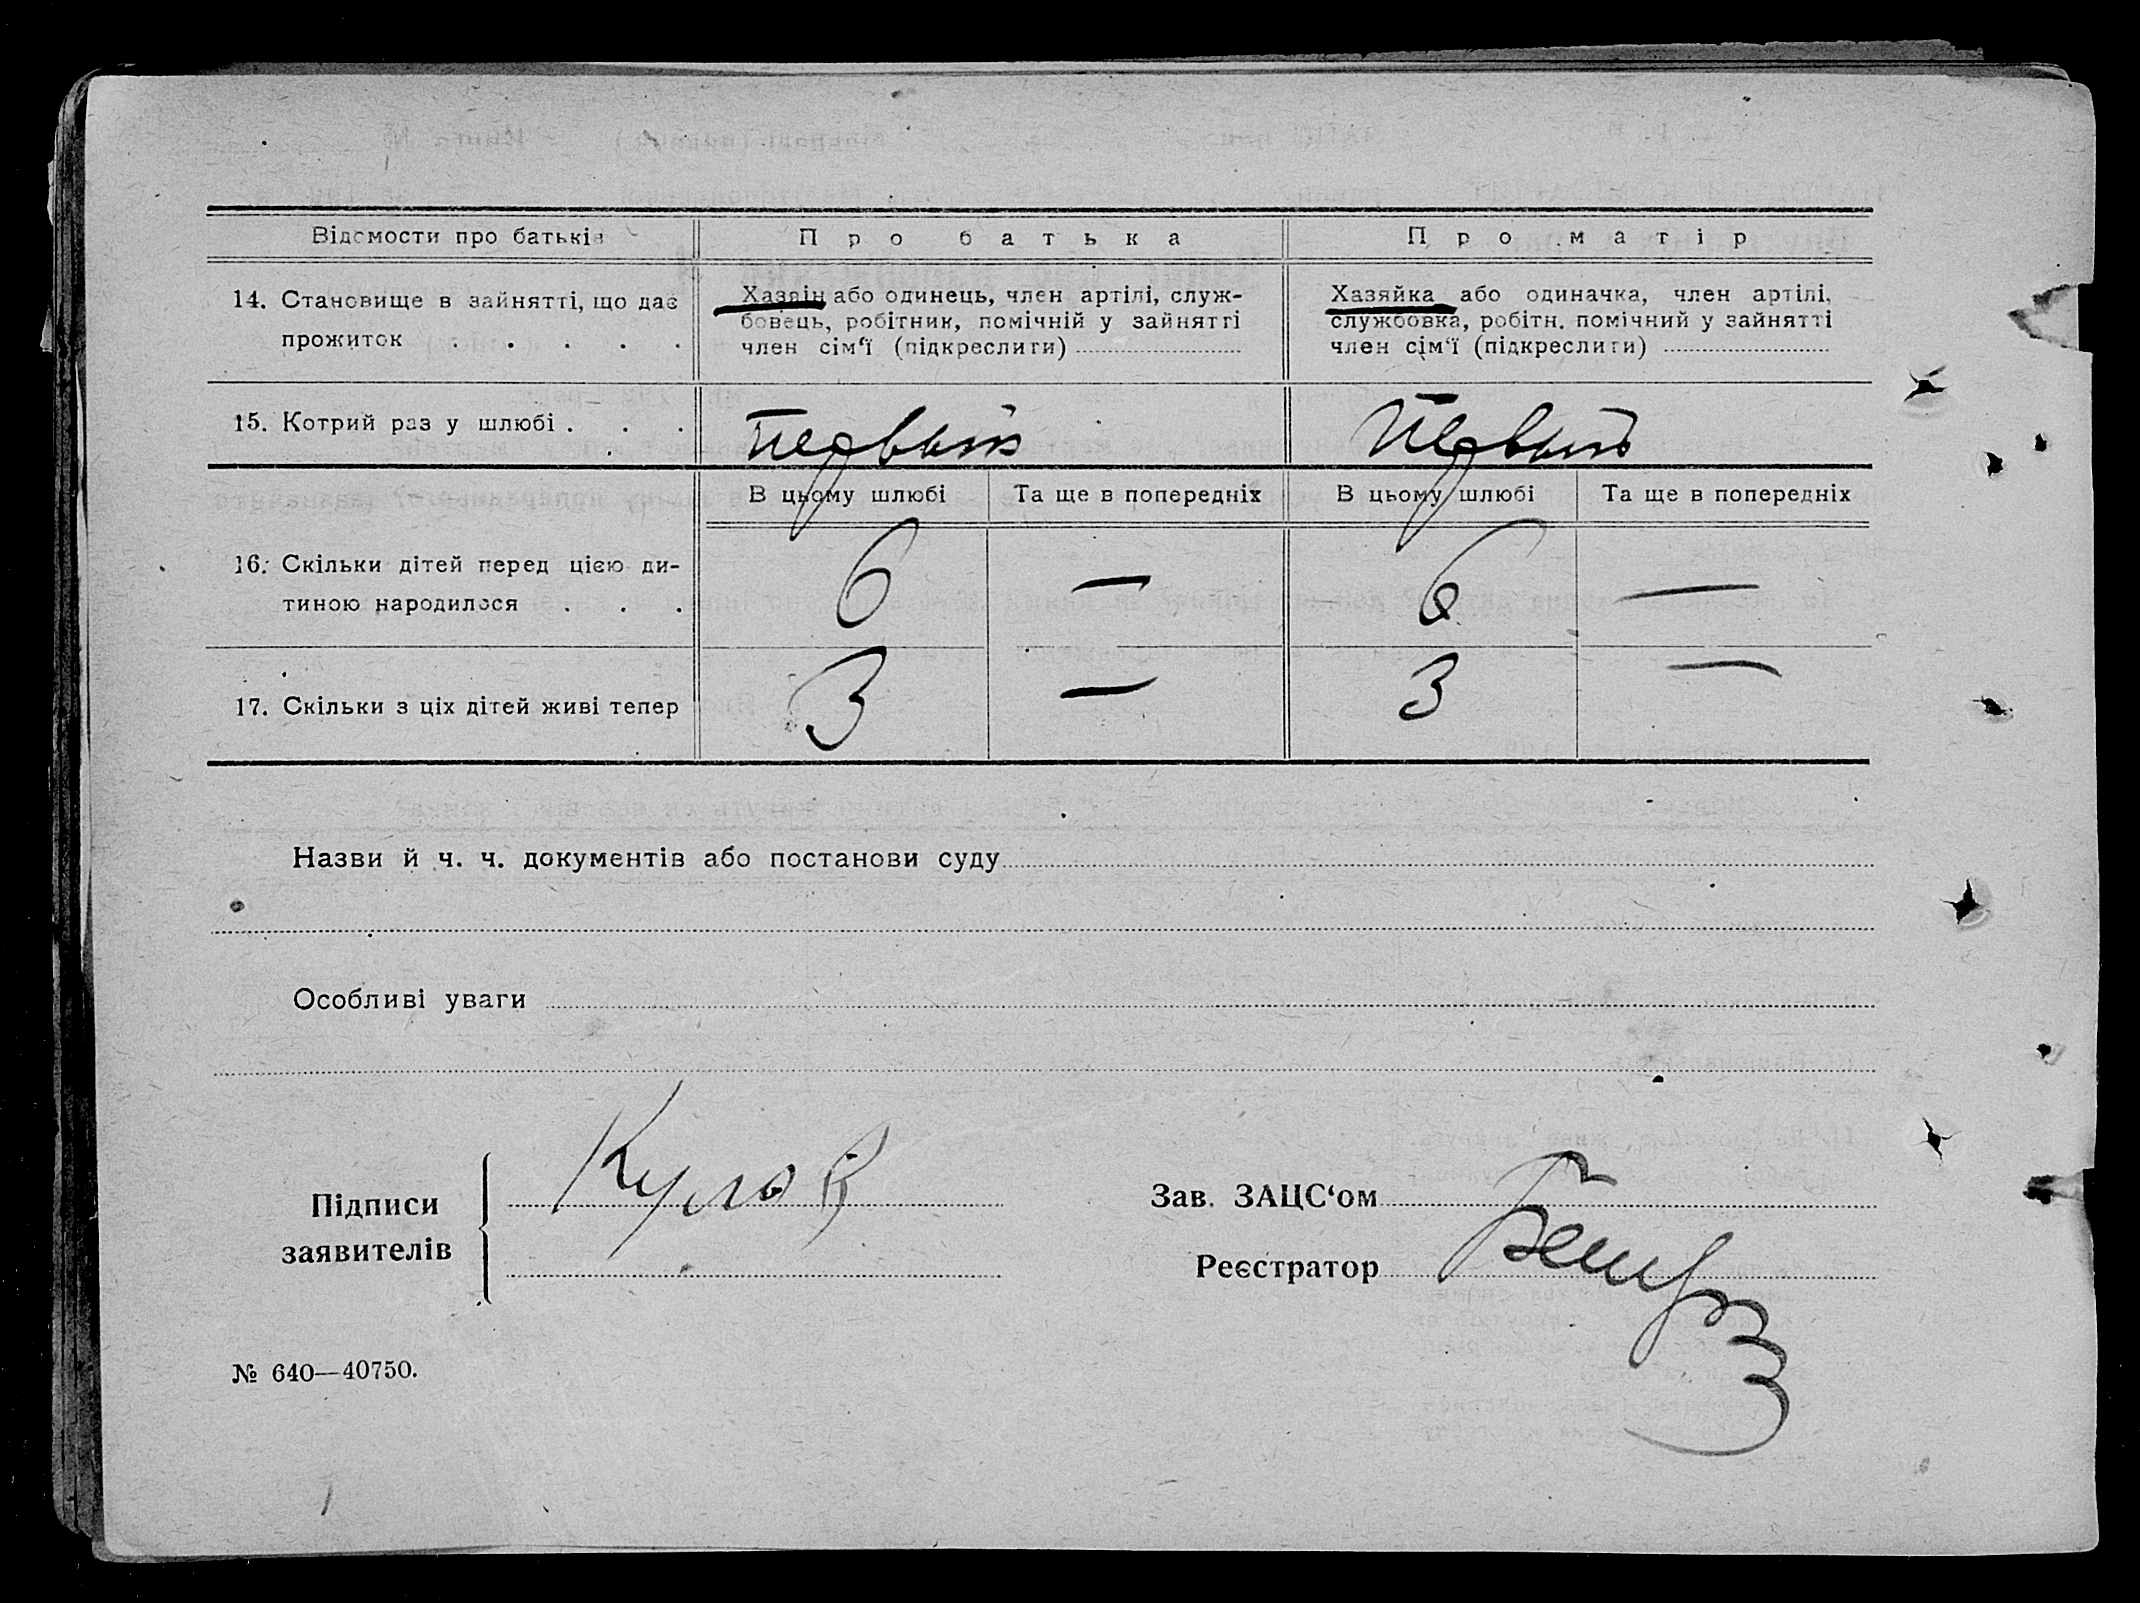 Відомости про батьків
Про батька
Про матір
14. Становище в зайнятті, що дає
прожиток . . . . .
Хазяїн або одинець, член артілі, служ-
бовець, робітник, помічній у зайнятті
член сім‘ї (підкреслити)
Хазяйка або одиначка, член артілі,
службовка, робітн. помічний у зайнятті
член сім‘ї (підкреслити)
15. Котрий раз у шлюбі . . .
Первый
Первый
В цьому шлюбі
Та ще в попередніх
В цьому шлюбі
Та ще в попередніх
16. Скільки дітей перед цією ди-
тиною народилося . . .
6
—
6
—
17. Скільки з ціх дітей живі тепер
3
—
3
—
Назви й ч. ч. документів або постанови суду
Особливі уваги
Підписи
заявителів
Зав. ЗАЦС‘ом
Реєстратор
№ 640—40750.